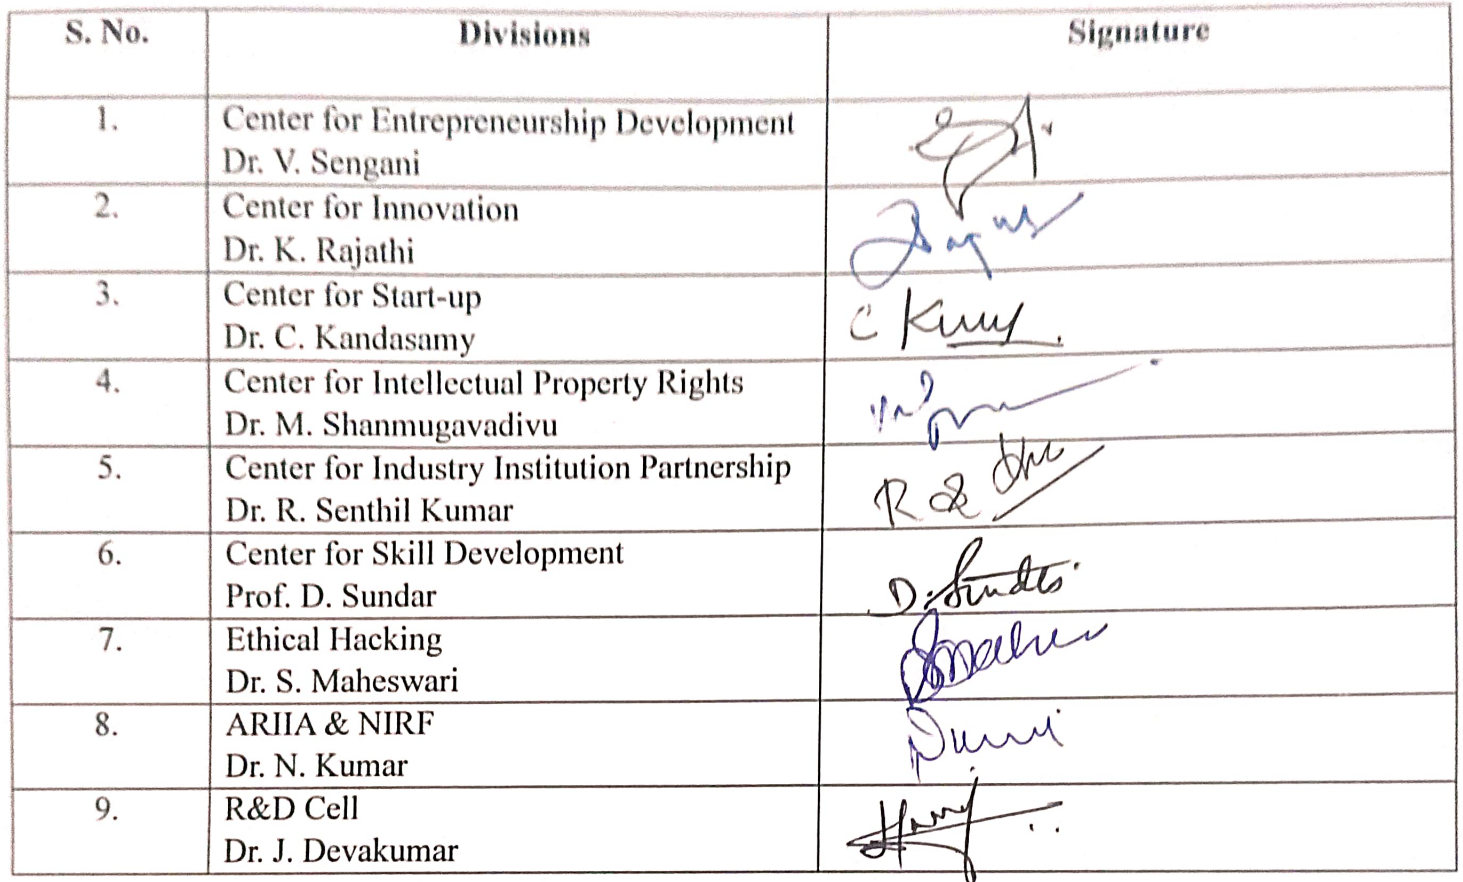 S. No. Divisions Signature
1. Center for Entrepreneurship Development
Dr. V. Sengani
2. Center for Innovation
Dr. K. Rajathi
3. Center for Start-up
Dr. C. Kandasamy
4. Center for Intellectual Property Rights
Dr. M. Shanmugavadivu
5. Center for Industry Institution Partnership
Dr. R. Senthil Kumar
6. Center for Skill Development
Prof. D. Sundar
D. Sundar
7. Ethical Hacking
Dr. S. Maheswari
8. ARIIA & NIRF
Dr. N. Kumar
9. R&D Cell
Dr. J. Devakumar